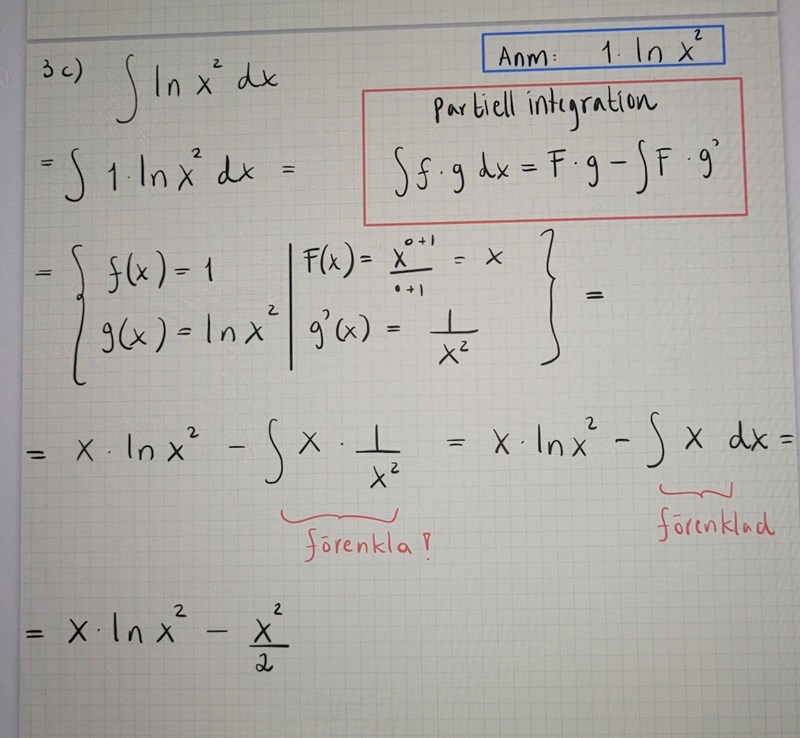 3c) ∫ ln x² dx
Anm: 1· ln x²
Partiell integration
∫ f · g dx = F · g − ∫ F · g'
= ∫ 1· ln x² dx =
= { f(x) = 1 | F(x) = x⁰⁺¹/0+1 = x
g(x) = ln x² | g'(x) = 1/x² } =
= x · ln x² − ∫ x · 1/x² = x · ln x² − ∫ x dx =
förenkla!
förenklad
= x · ln x² − x²/2